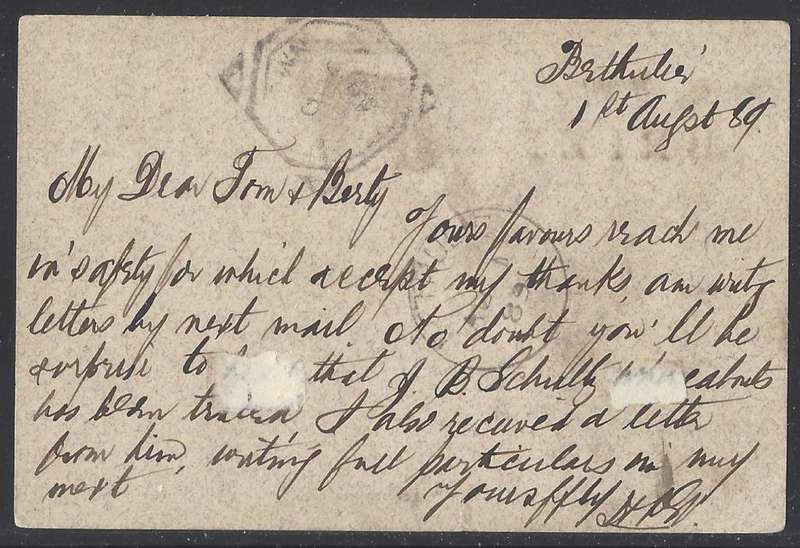 Berthulie'
1st Augst 89.
My Dear Tom & Berty
Yours favours reach me
in safety for which accept my thanks, am writg
letters by next mail. No doubt you'll be
surprise to that J. B. Schultz eabouts
has been traced I also received a letter
from him, writing full particulars in my
next Yours ffly
89